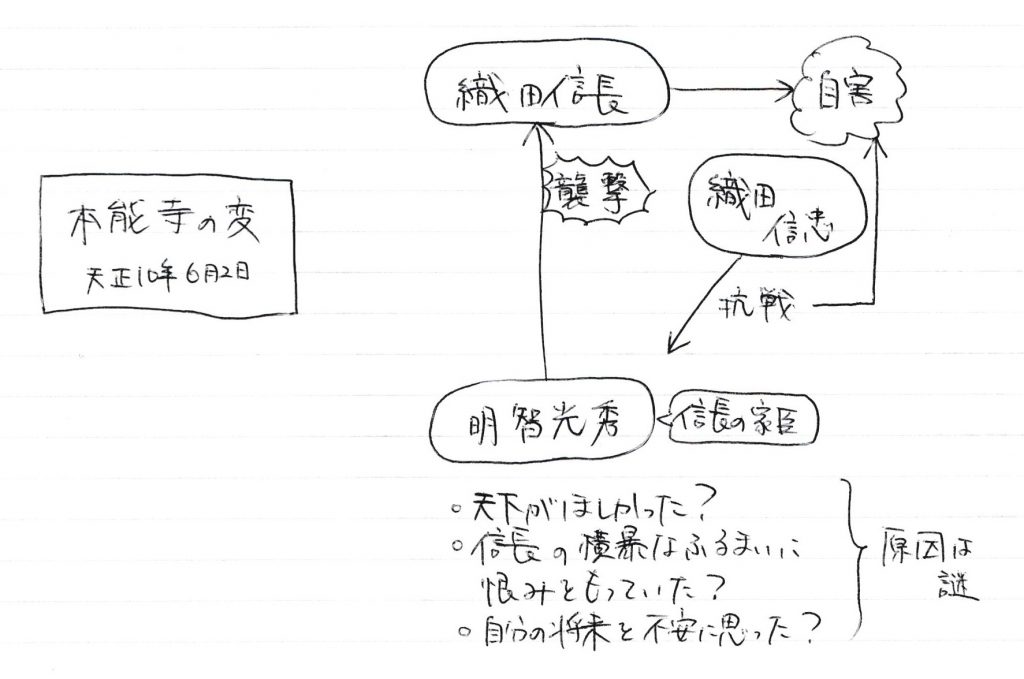 織田信長
自害
襲撃
織田
信忠
本能寺の変
天正10年6月2日
抗戦
明智光秀
信長の家臣
・天下がほしかった？
・信長の横暴なふるまいに
恨みをもっていた？
・自分の将来を不安に思った？
原因は
謎